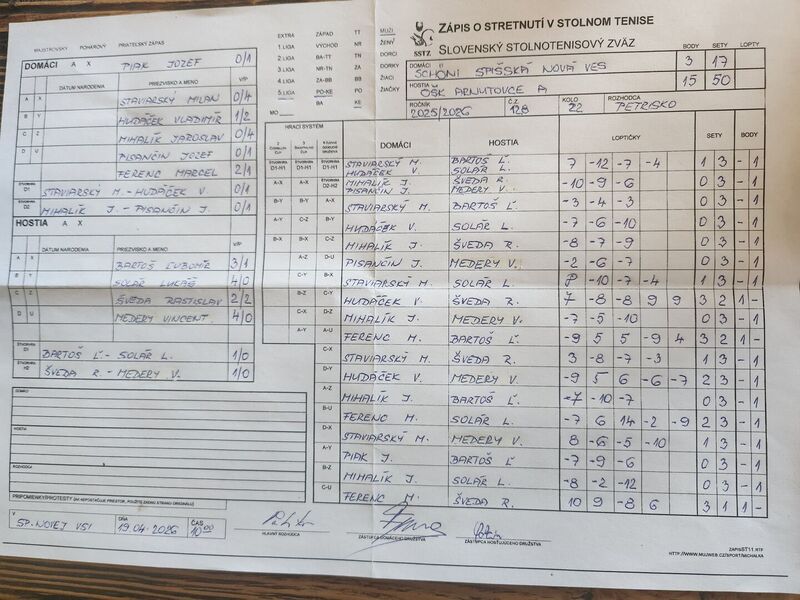 MAJSTROVSKÝ POHÁROVÝ PRIATEĽSKÝ ZÁPAS
ZÁPIS O STRETNUTÍ V STOLNOM TENISE
SLOVENSKÝ STOLNOTENISOVÝ ZVÄZ
SSTZ
EXTRA ZÁPAD TT
1.LIGA VÝCHOD NR
2.LIGA BA-TT TN
3.LIGA NR-TN ZA
4.LIGA ZA-BB BB
5.LIGA PO-KE PO
BA KE
MUŽI
ŽENY
DORCI
DORKY
ŽIACI
ŽIAČKY
BODY SETY LOPTY
DOMÁCI SCHONI SPIŠSKÁ NOVÁ VES 3 17
HOSTIA OŠK ARNUTOVCE A 15 50
ROČNÍK 2025/2026 Č.Z. 128 KOLO 22 ROZHODCA PETRISKO
DOMÁCI A X PIAK JOZEF 0/1
DÁTUM NARODENIA PRIEZVISKO A MENO V/P
A X STAVIARSKÝ MILAN 0/4
B Y HUDÁČEK VLADIMÍR 1/2
C Z MIHALÍK JAROSLAV 0/4
D U PISANČIN JOZEF 0/1
FERENC MARCEL 2/1
ŠTVORHRA D1 STAVIARSKÝ M - HUDÁČEK V. 0/1
ŠTVORHRA D2 MIHALÍK J. - PISANČIN J. 0/1
HOSTIA A X
DÁTUM NARODENIA PRIEZVISKO A MENO V/P
A X BARTOŠ ĽUBOMÍR 3/1
B Y SOLÁR LUKÁŠ 4/0
C Z ŠVEDA RASTISLAV 2/2
D U MEDERY VINCENT 4/0
ŠTVORHRA BARTOŠ Ľ. - SOLÁR L. 1/0
ŠTVORHRA H2 ŠVEDA R. - MEDERY V. 1/0
HRACÍ SYSTÉM DOMÁCI HOSTIA LOPTIČKY SETY BODY
STAVIARSKÝ M. HUDÁČEK V. BARTOŠ Ľ. SOLÁR L. 7 -12 -7 -4 1 3 - 1
MIHALÍK J. PISANČIN J. ŠVEDA R. MEDERY V. -10 -9 -6 0 3 - 1
STAVIARSKÝ M. BARTOŠ Ľ. -3 -4 -3 0 3 - 1
HUDÁČEK V. SOLÁR L. -7 -6 -10 0 3 - 1
MIHALÍK J. ŠVEDA R. -8 -7 -9 0 3 - 1
PISANČIN J. MEDERY V. -2 -6 -7 0 3 - 1
STAVIARSKÝ M. SOLÁR L. -10 -7 -4 1 3 - 1
HUDÁČEK V. ŠVEDA R. 7 -8 -8 9 9 3 2 1 -
MIHALÍK J. MEDERY V. -7 -5 -10 0 3 - 1
FERENC M. BARTOŠ Ľ. -9 5 5 -9 4 3 2 1 -
STAVIARSKÝ M. ŠVEDA R. 3 -8 -7 -3 1 3 - 1
HUDÁČEK V. MEDERY V. -9 5 6 -6 -7 2 3 - 1
MIHALÍK J. BARTOŠ Ľ. -7 -10 -7 0 3 - 1
FERENC M. SOLÁR L. -7 6 14 -2 -9 2 3 - 1
STAVIARSKÝ M. MEDERY V. 8 -6 -5 -10 1 3 - 1
PIAK J. BARTOŠ Ľ -7 -9 -6 0 3 - 1
MIHALÍK J. SOLÁR L. -8 -2 -12 0 3 - 1
FERENC M. ŠVEDA R. 10 9 -8 6 3 1 1 -
DOMÁCI
HOSTIA
ROZHODCA
V SP. NOVEJ VSI DŇA 19.04.2026 ČAS 10:00
HLAVNÝ ROZHODCA
ZÁSTUPCA DOMÁCEHO DRUŽSTVA
ZÁSTUPCA HOSŤUJÚCEHO DRUŽSTVA
ZAPISST11.RTF
HTTP://WWW.MUJWEB.CZ/SPORT/MICHALKA